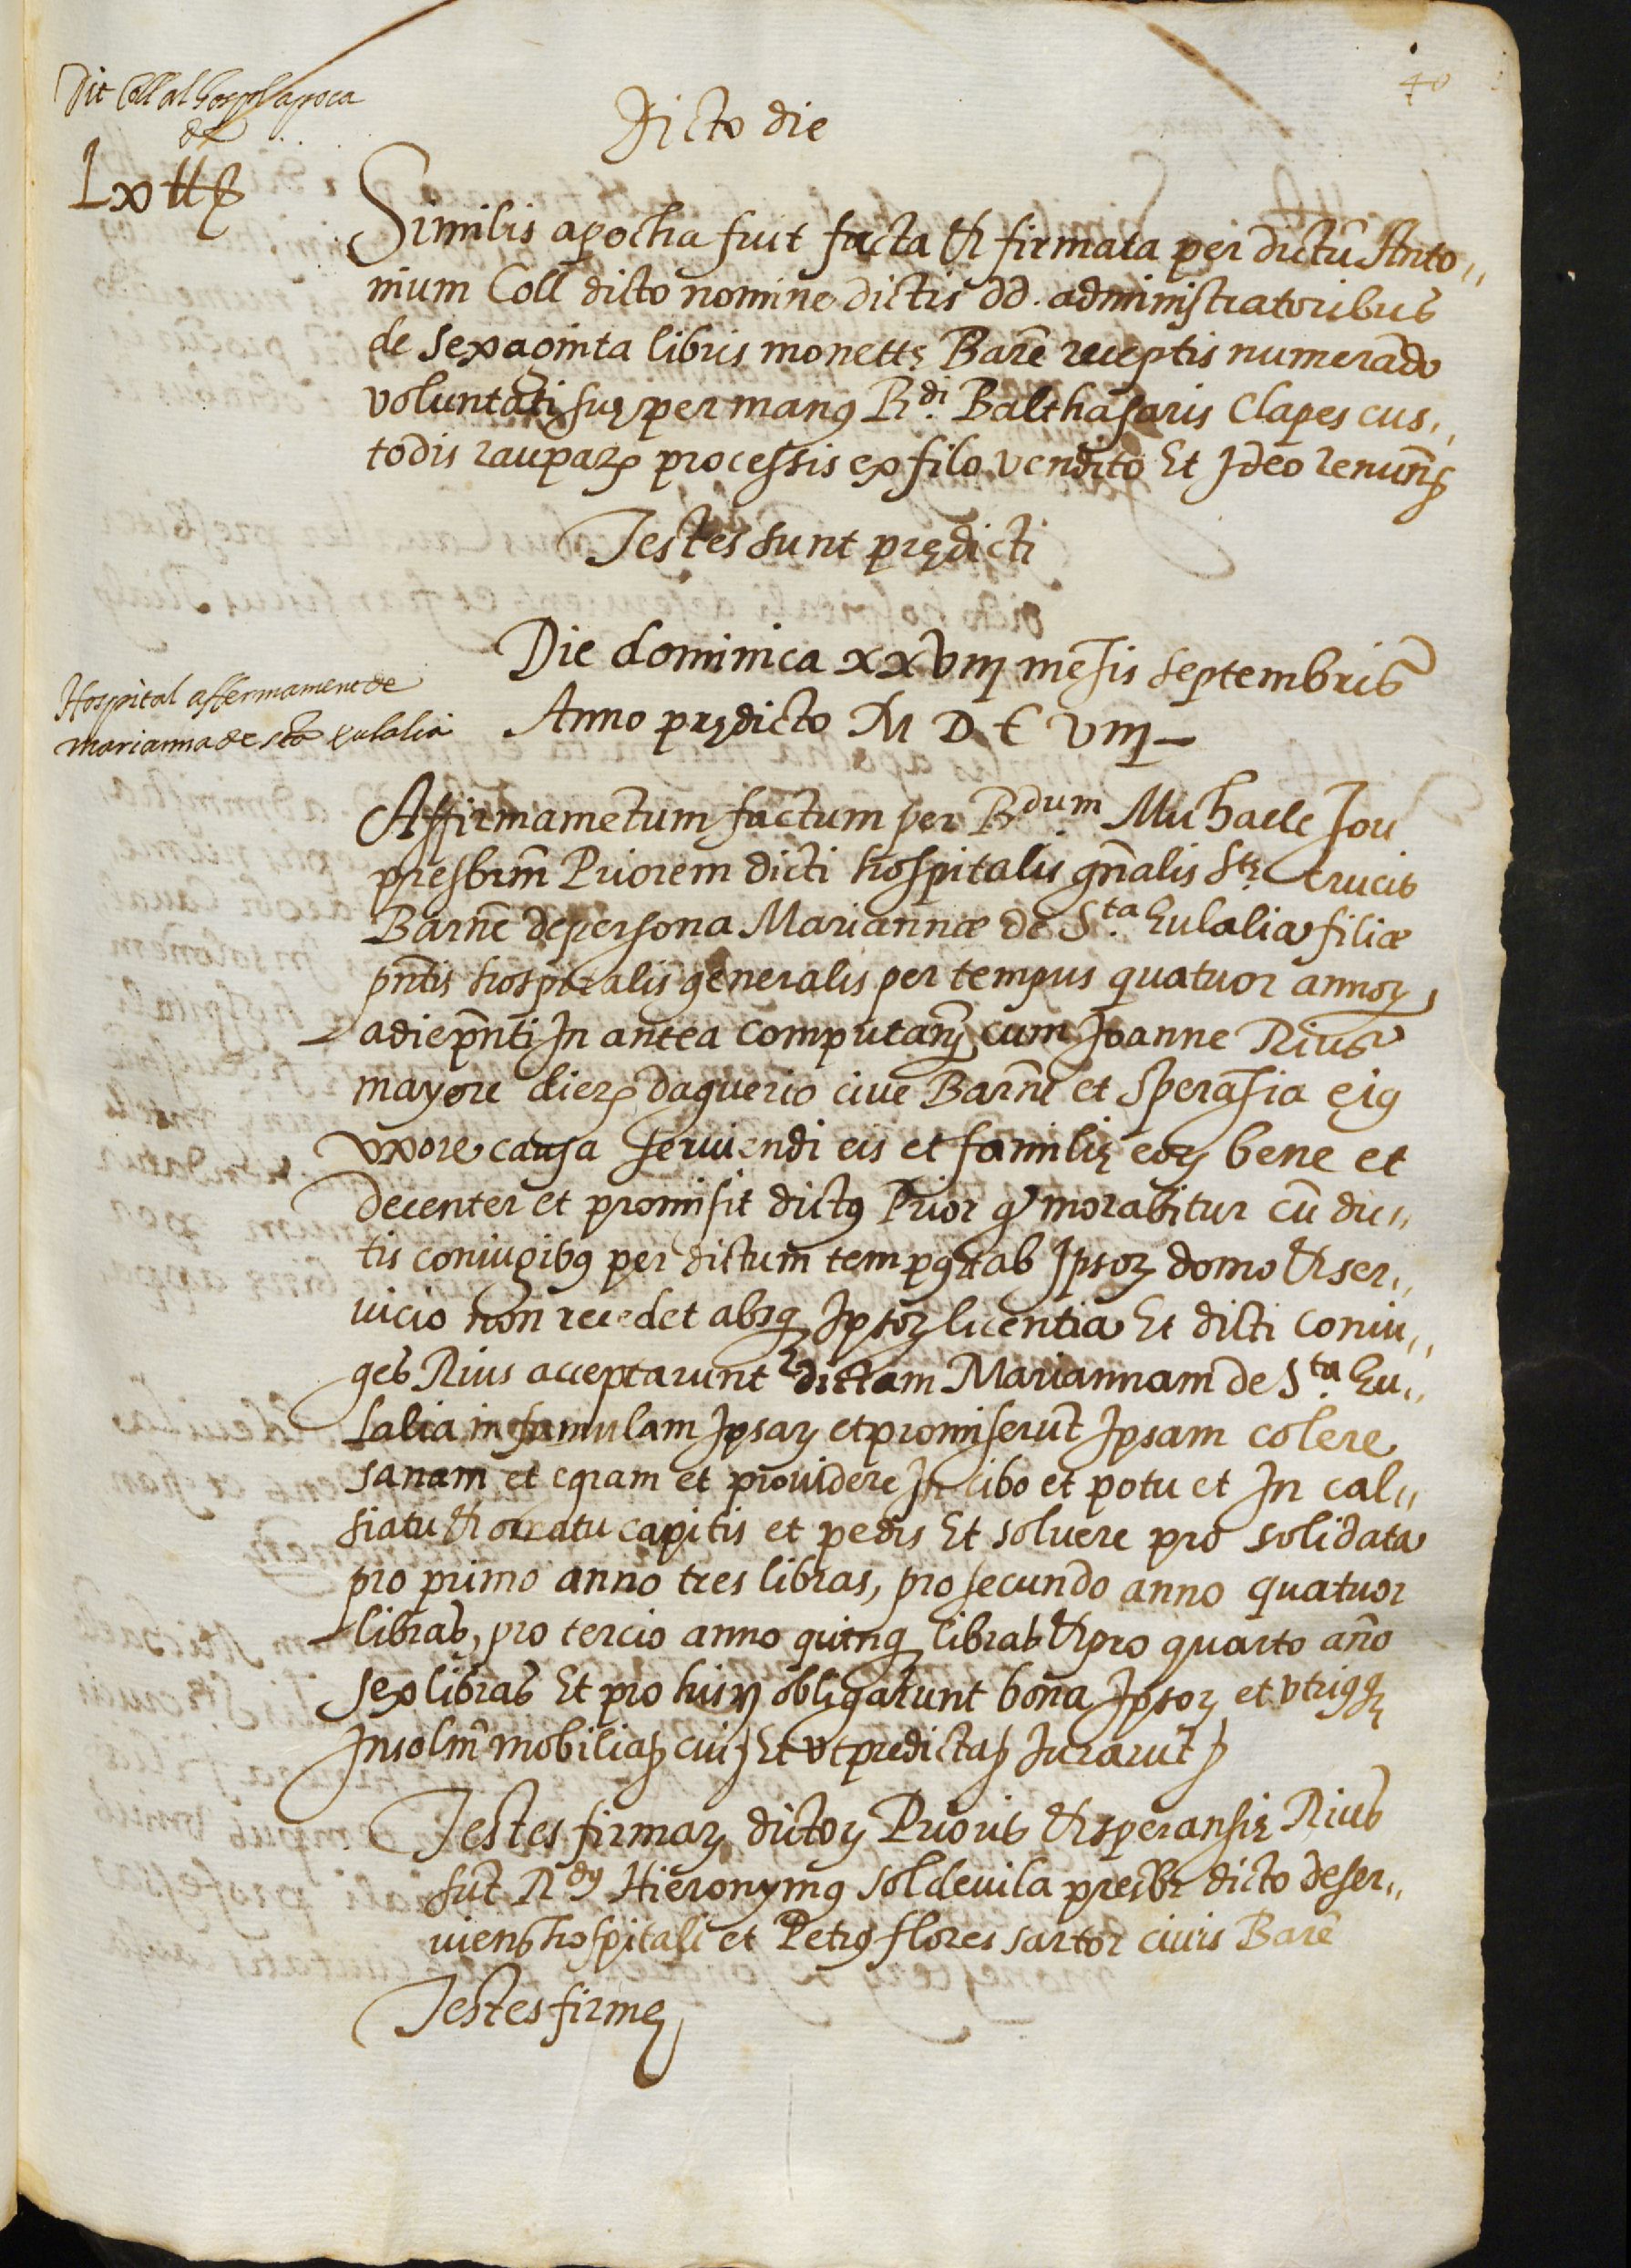 40
Dit Coll al hospl apoca
de
Lx ℔ ß
Dicto die
Similis apocha fuit facta et firmata per dictū Anto„
nium Coll dicto nomine dictis dd. administratoribus
de sexaginta libris monetę Barñe receptis numerãdo
voluntati suę per manꝰ R.di Balthasaris Clapes cus„
todis raupaꝝ processis ex filo vendito Et Ideo renunñ
Testes sunt prędicti
Die dominica xxviij mẽsis septembris
Anno prędicto M D C viij
Hospital affermament de
marianna de sta eulalia
Affirmamẽtum factum per R.dum Michaele Jou
presbrm̃ Priorem dicti hospitalis gñalis Stę Crucis
Barñe de persona Mariannæ de S.ta Eulalia filiæ
pñtis hospitalis generalis per tempus quatuor annoꝝ
a die pñti In antea computanꝝ cum Joanne Rius
mayore dieꝝ daguerio cive Barñe et Sperãsia ejꝰ
vxore causa serviendi eis et familię eoꝝ bene et
decenter et promisit dictꝰ Prior ꝙ morabitur cū dic„
tis coniugibꝰ per dictum tempꝰ et ab Ipsoꝝ domo et ser„
vicio non recedet absqꝫ Ipsoꝝ licentia Et dicti coniu„
ges Rius acceptarunt dictam Mariannam de S.ta Eu„
lalia in famulam Ipsaꝝ et promiserūt Ipsam colere
sanam et egram et providere In cibo et potu et In cal„
siatu et ornatu capitis et pedis Et solvere pro solidata
pro primo anno tres libras, pro secundo anno quatuor
libras, pro tercio anno quinqꝫ libras et pro quarto año
sex libras Et pro hiis obligarunt bona Ipsoꝝ et vtriꝰqꝫ
Insolm̃ mobilia ꝭ cuiꝭ Et vt predicta ꝭ Jurarūt ꝭ
Testes firmaꝝ dictoꝝ Prioris et speransię Rius
sūt R.dꝰ Hieronymꝰ Soldevila presbr dicto deser„
viens hospitali et Petrꝰ flores sartor civis Barñe
Testes firmę